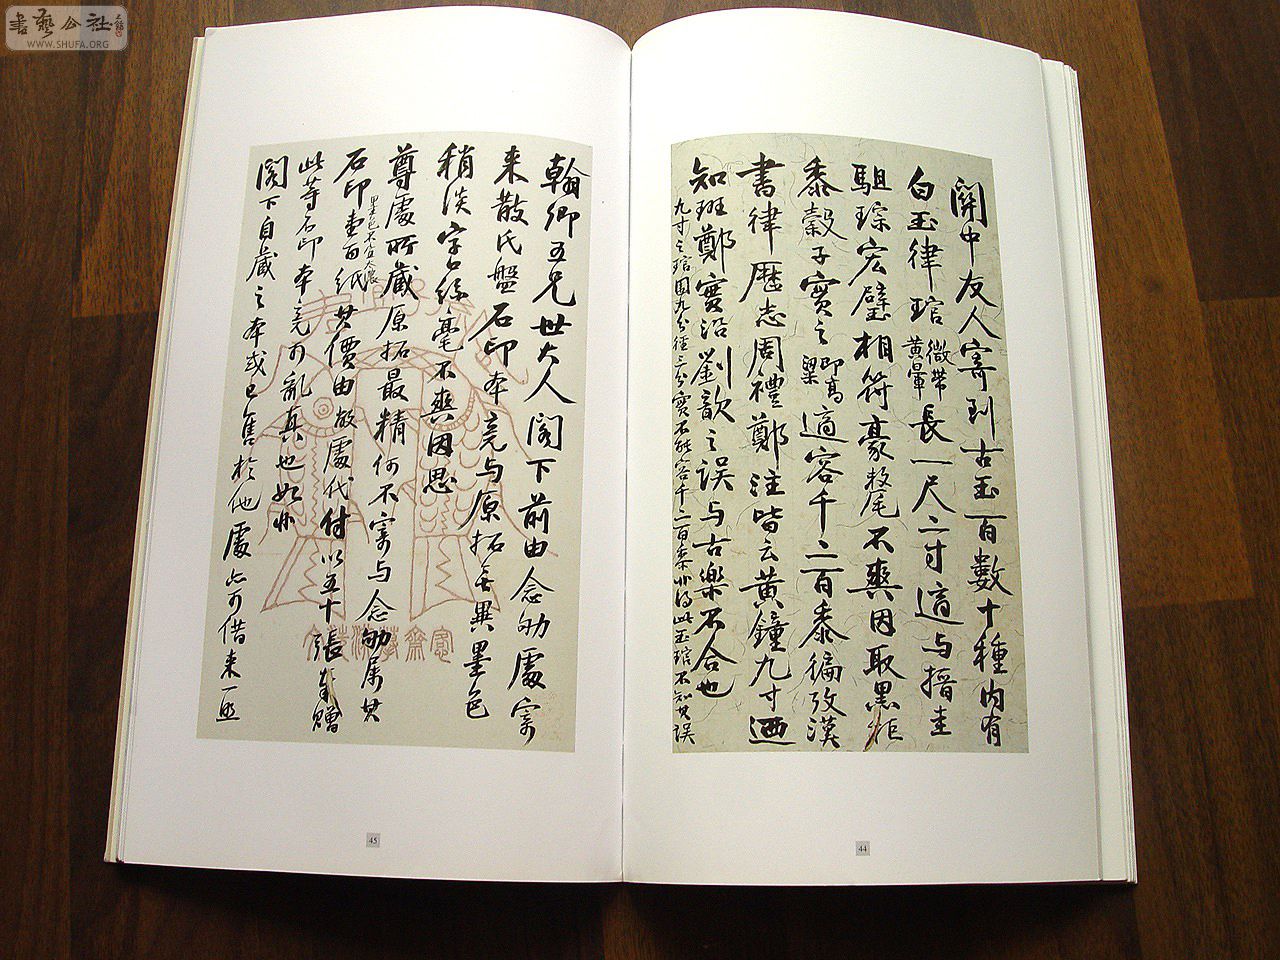 書藝公社
WWW.SHUFA.ORG
關中友人寄到古玉百數十種內有
白玉律琯微帶黃暈長一尺二寸適與搢圭
駔琮宏璧相符豪釐不爽因取黑秬
黍穀子實之即高粱適容千二百黍徧攷漢
書律歷志周禮鄭注皆云黃鐘九寸迺
知班鄭實沿劉歆之誤与古樂不合也
九寸之琯圍九分徑三分實不能容千二百黍非得此玉琯不知其誤
44
翰卿五兄世大人閣下前由念劬處寄
来散氏盤石印本竟与原拓無異墨色
稍淡字口絲毫不爽因思
尊處所藏原拓最精何不寄与念劬属其
石印壹百紙墨色不宜太濃其價由敝處代付以五十張奉贈
此等石印本竟可亂真也如非
閣下自藏之本或已售於他處亦可借来一
愙齋摹
45